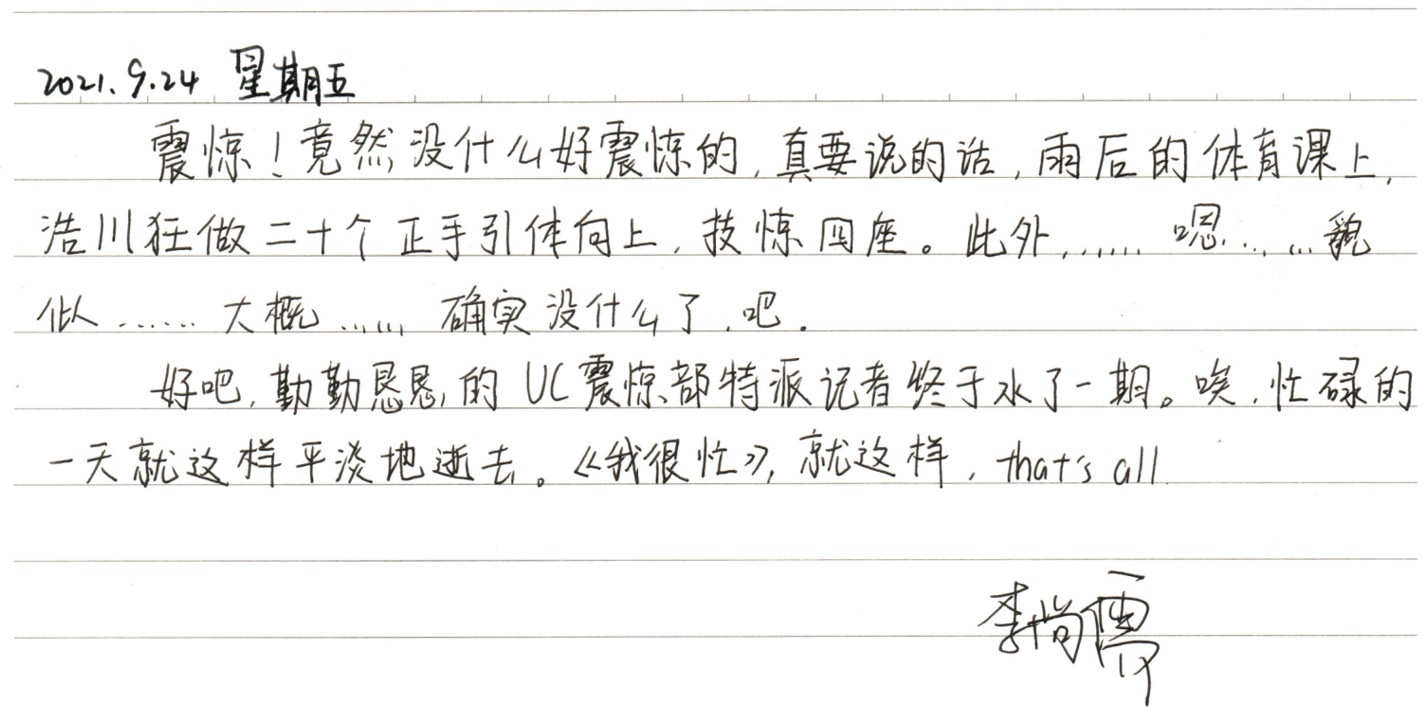 2021.9.24 星期五
震惊！竟然没什么好震惊的，真要说的话，雨后的体育课上，
浩川狂做二十个正手引体向上，技惊四座。此外，…… 嗯……貌
似…… 大概…… 确实没什么了，吧。
好吧，勤勤恳恳的UC震惊部特派记者终于水了一期。唉，忙碌的
一天就这样平淡地逝去。《我很忙》，就这样，that's all
李尚儒